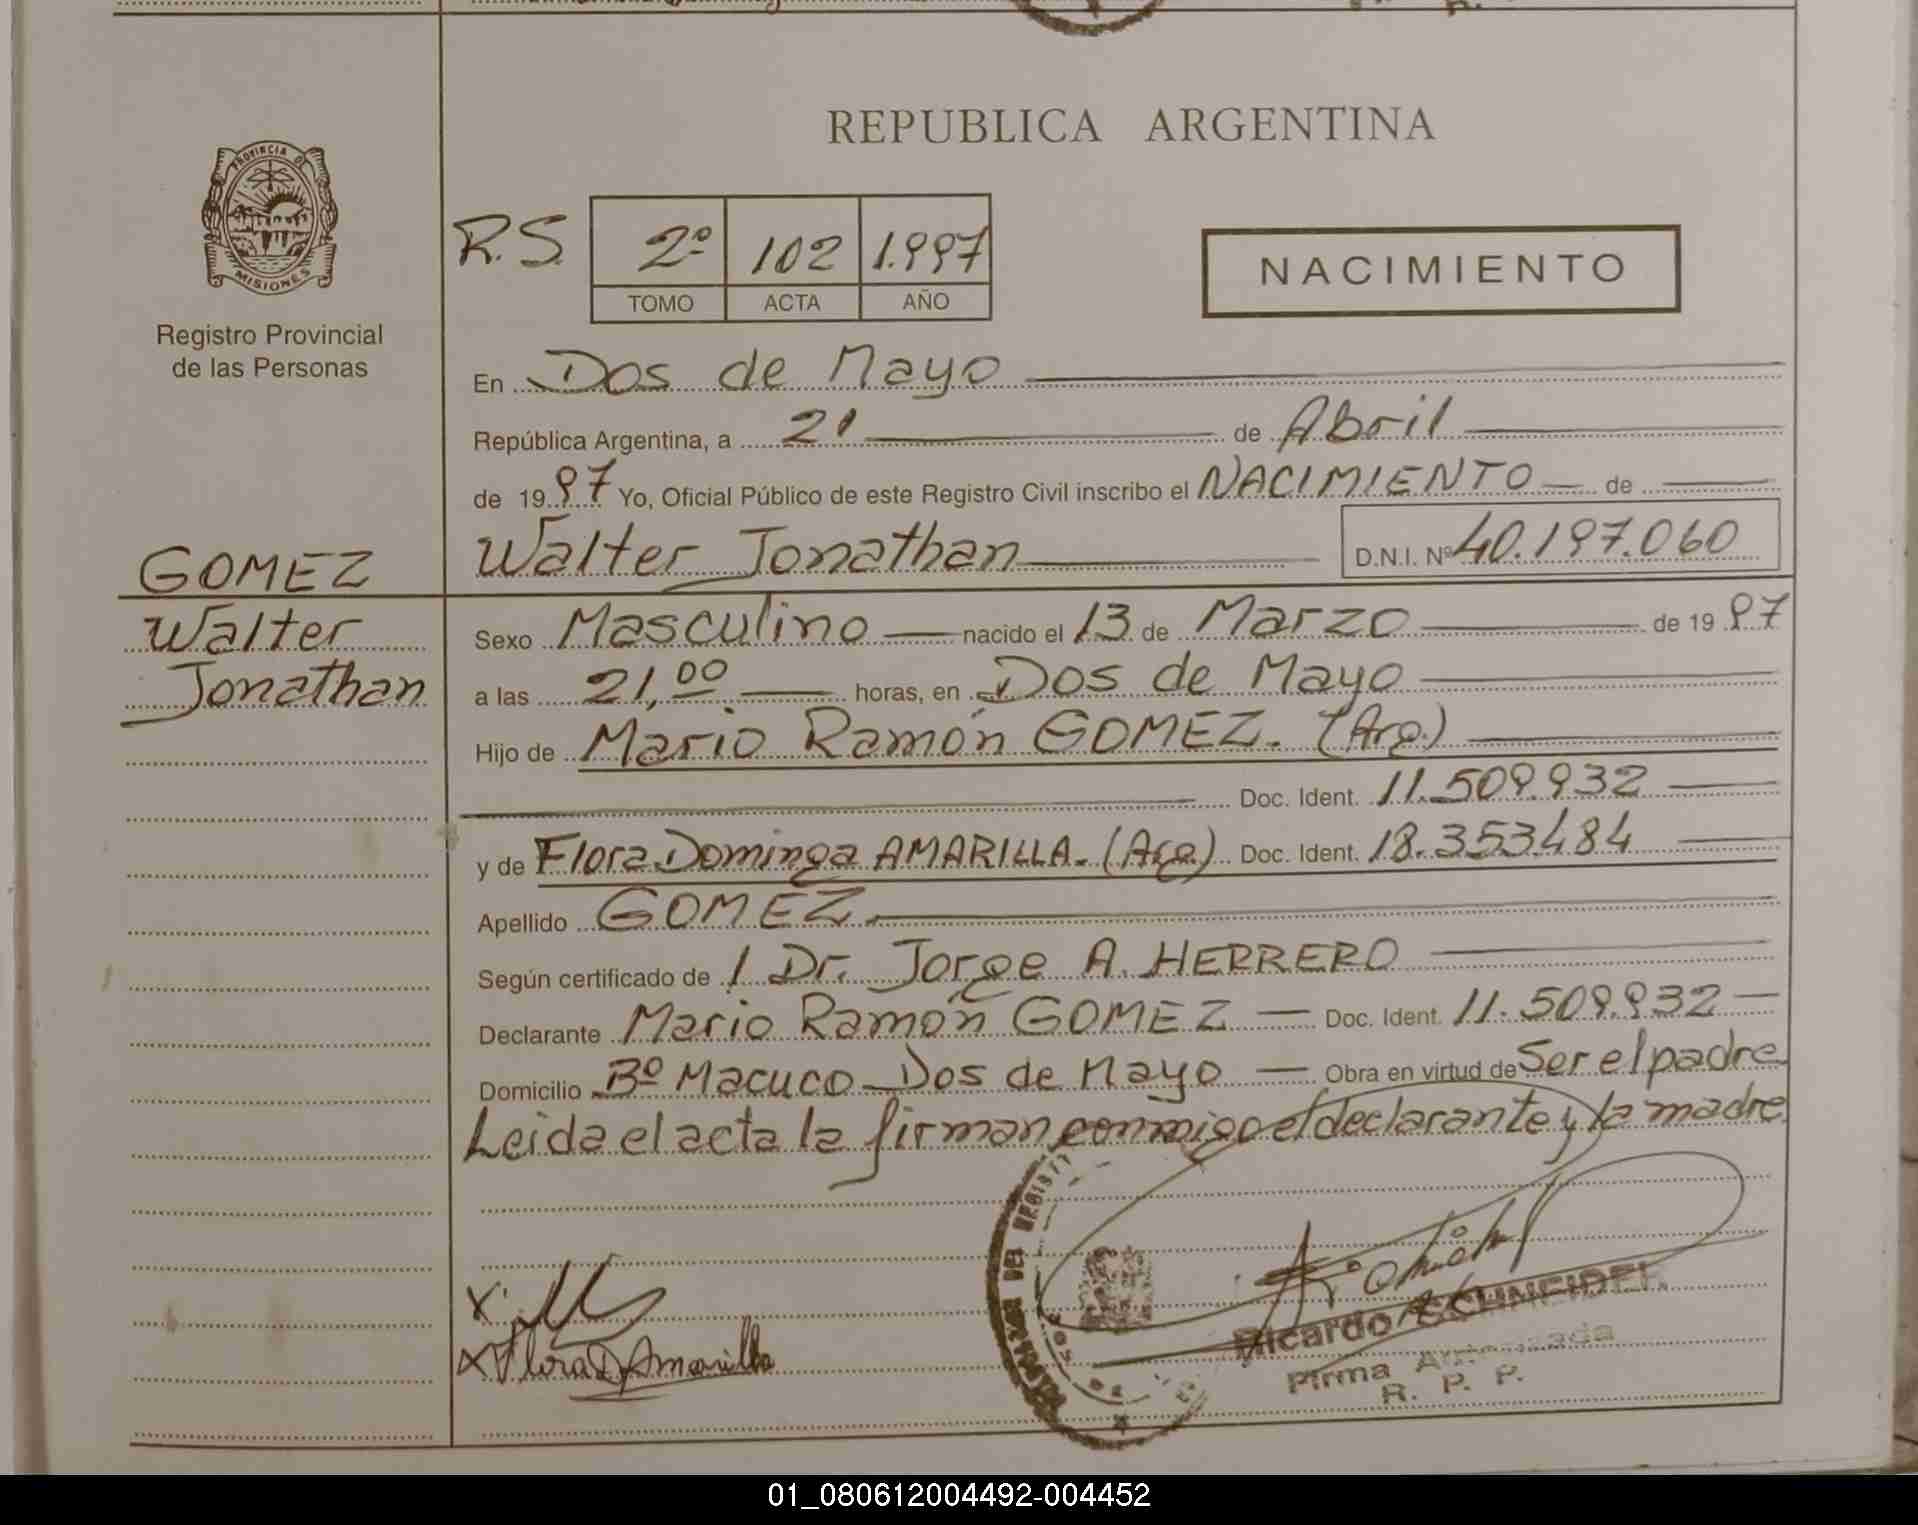 REPUBLICA ARGENTINA
PROVINCIA DE
MISIONES
Registro Provincial
de las Personas
R.S. 2º 102 1.997
TOMO ACTA AÑO
NACIMIENTO
En Dos de Mayo
República Argentina, a 21 de Abril
de 1997 Yo, Oficial Público de este Registro Civil inscribo el NACIMIENTO de
Walter Jonathan D.N.I. Nº 40.197.060
GOMEZ
Walter
Jonathan
Sexo Masculino nacido el 13 de Marzo de 1997
a las 21,00 horas, en Dos de Mayo
Hijo de Mario Ramón GOMEZ. (Arg.)
Doc. Ident. 11.509.932
y de Flora Dominga AMARILLA. (Arg.) Doc. Ident. 18.353.484
Apellido GOMEZ.
Según certificado de / Dr. Jorge A. HERRERO
Declarante Mario Ramón GOMEZ Doc. Ident. 11.509.932
Domicilio Bº Macuco Dos de Mayo Obra en virtud de Ser el padre
Leida el acta la firman conmigo el declarante y la madre
X
X Flora D Amarilla
Ricardo SCHNEIDER
Firma Autorizada
R. P. P.
01_080612004492-004452